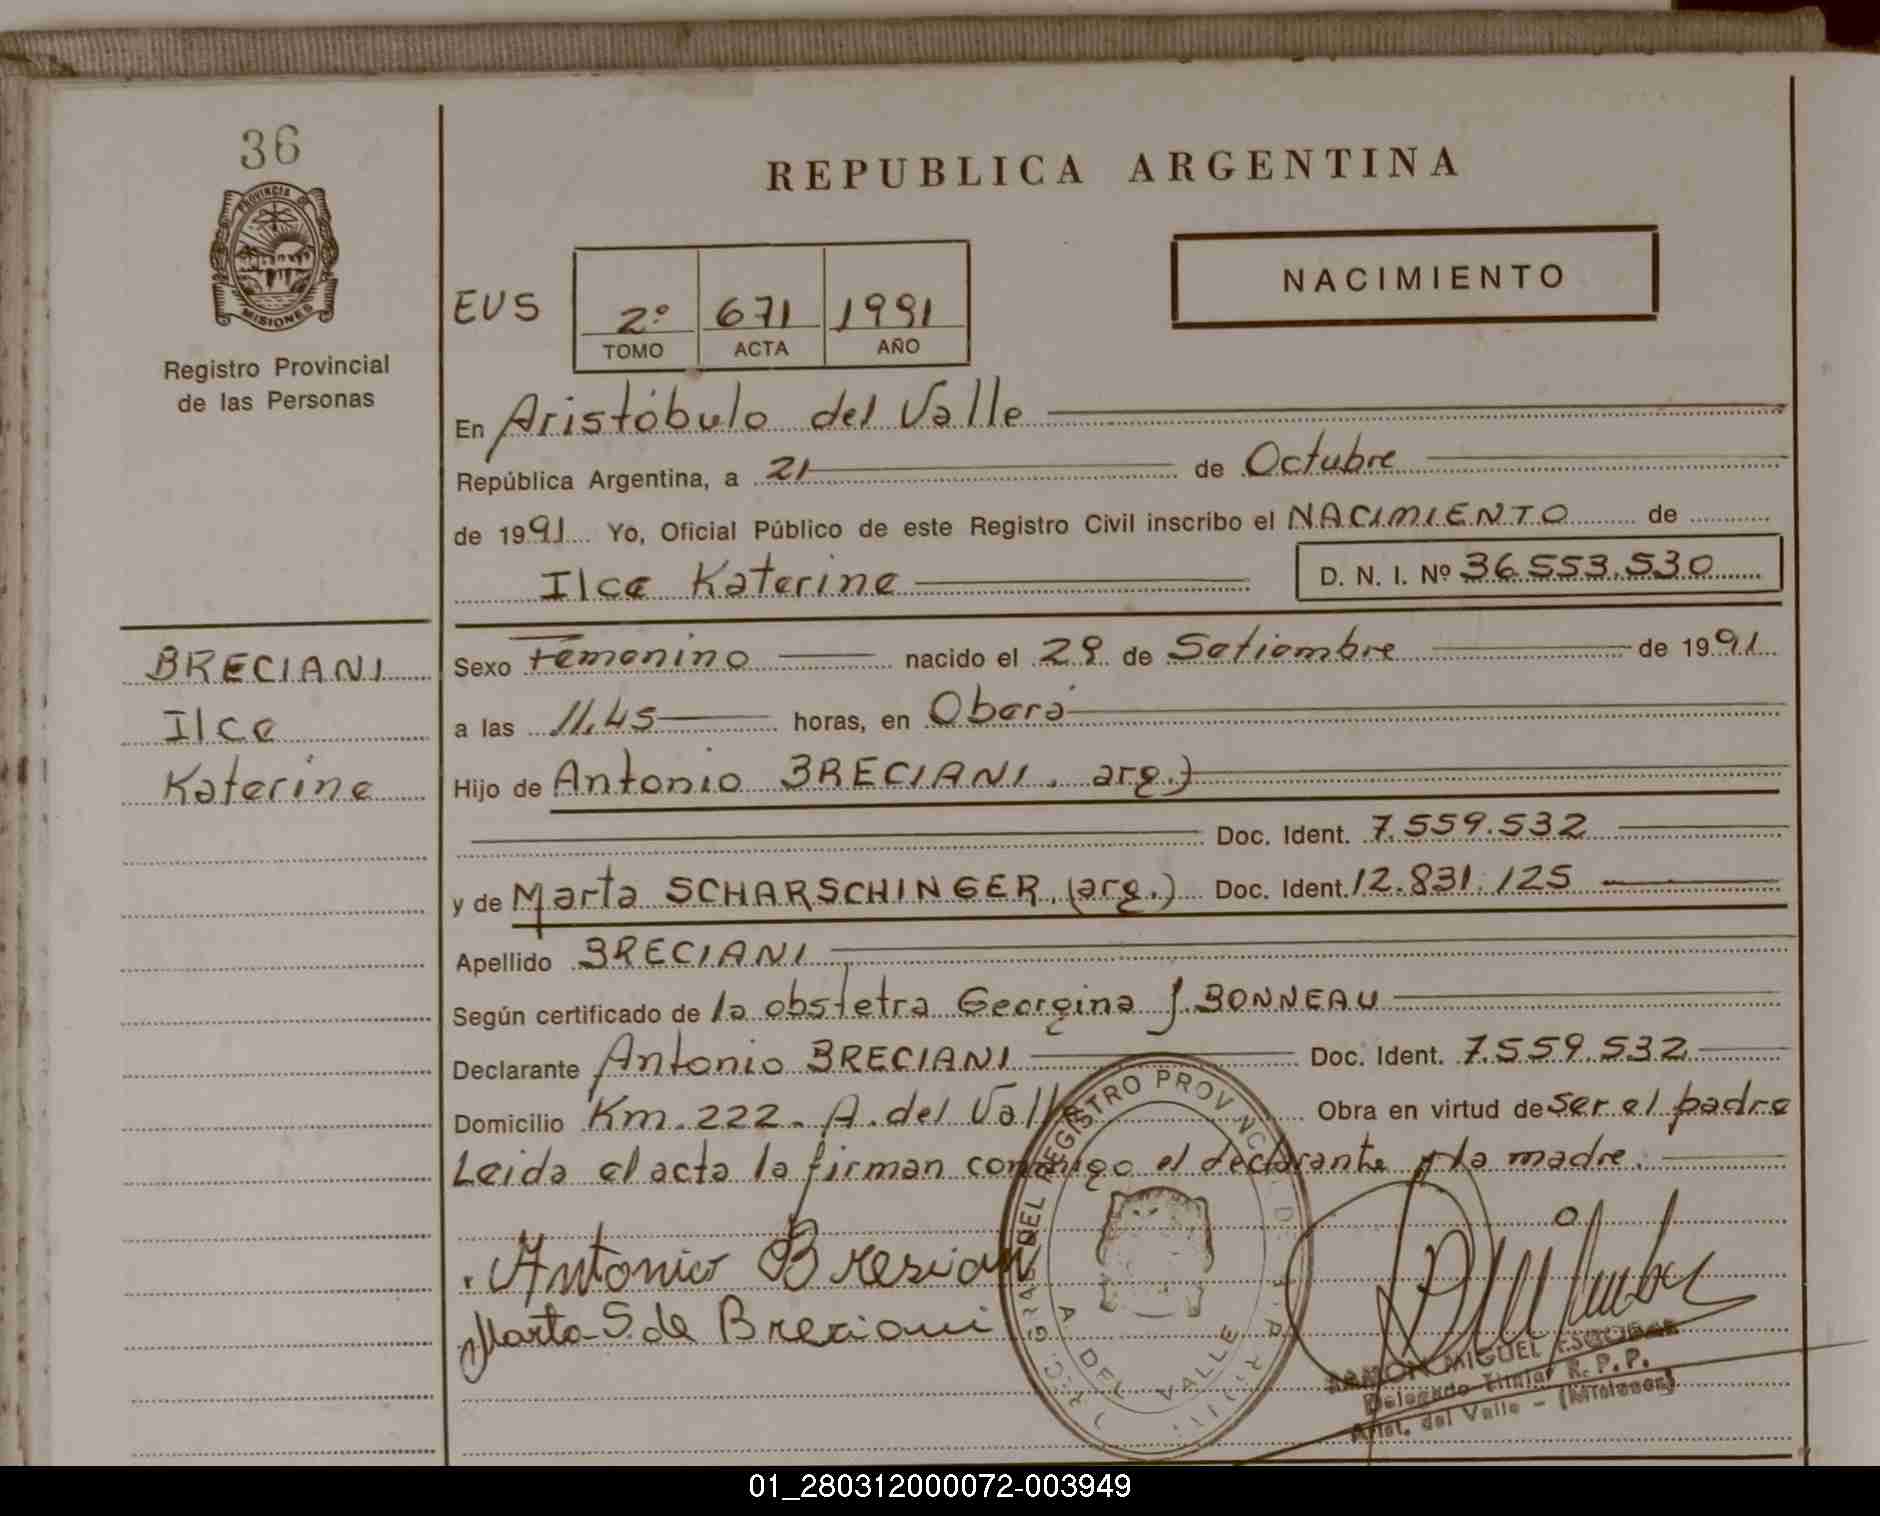 36
PROVINCIA DE
MISIONES
Registro Provincial
de las Personas
REPUBLICA ARGENTINA
NACIMIENTO
EUS
2º 671 1991
TOMO ACTA AÑO
En Aristóbulo del Valle
República Argentina, a 21 de Octubre
de 1991 Yo, Oficial Público de este Registro Civil inscribo el NACIMIENTO de
Ilce Katerine D. N. I. Nº 36.553.530
BRECIANI
Ilce
Katerine
Sexo Femenino nacido el 29 de Setiembre de 1991
a las 11,45 horas, en Oberá
Hijo de Antonio BRECIANI. arg.)
Doc. Ident. 7.559.532
y de Marta SCHARSCHINGER, (arg.) Doc. Ident. 12.831.125
Apellido BRECIANI
Según certificado de la obstetra Georgina J. BONNEAU
Declarante Antonio BRECIANI Doc. Ident. 7.559.532
Domicilio Km. 222. A. del Valle Obra en virtud de ser el padre
Leida el acta la firman conmigo el declarante y la madre.
Antonio Bresiani
Marta S. de Breciani
DEL REGISTRO PROVINCIAL DE
A. DEL VALLE
RAMON MIGUEL ESCOBAR
Delegado Titular R. P. P.
Arist. del Valle - (Misiones)
01_280312000072-003949